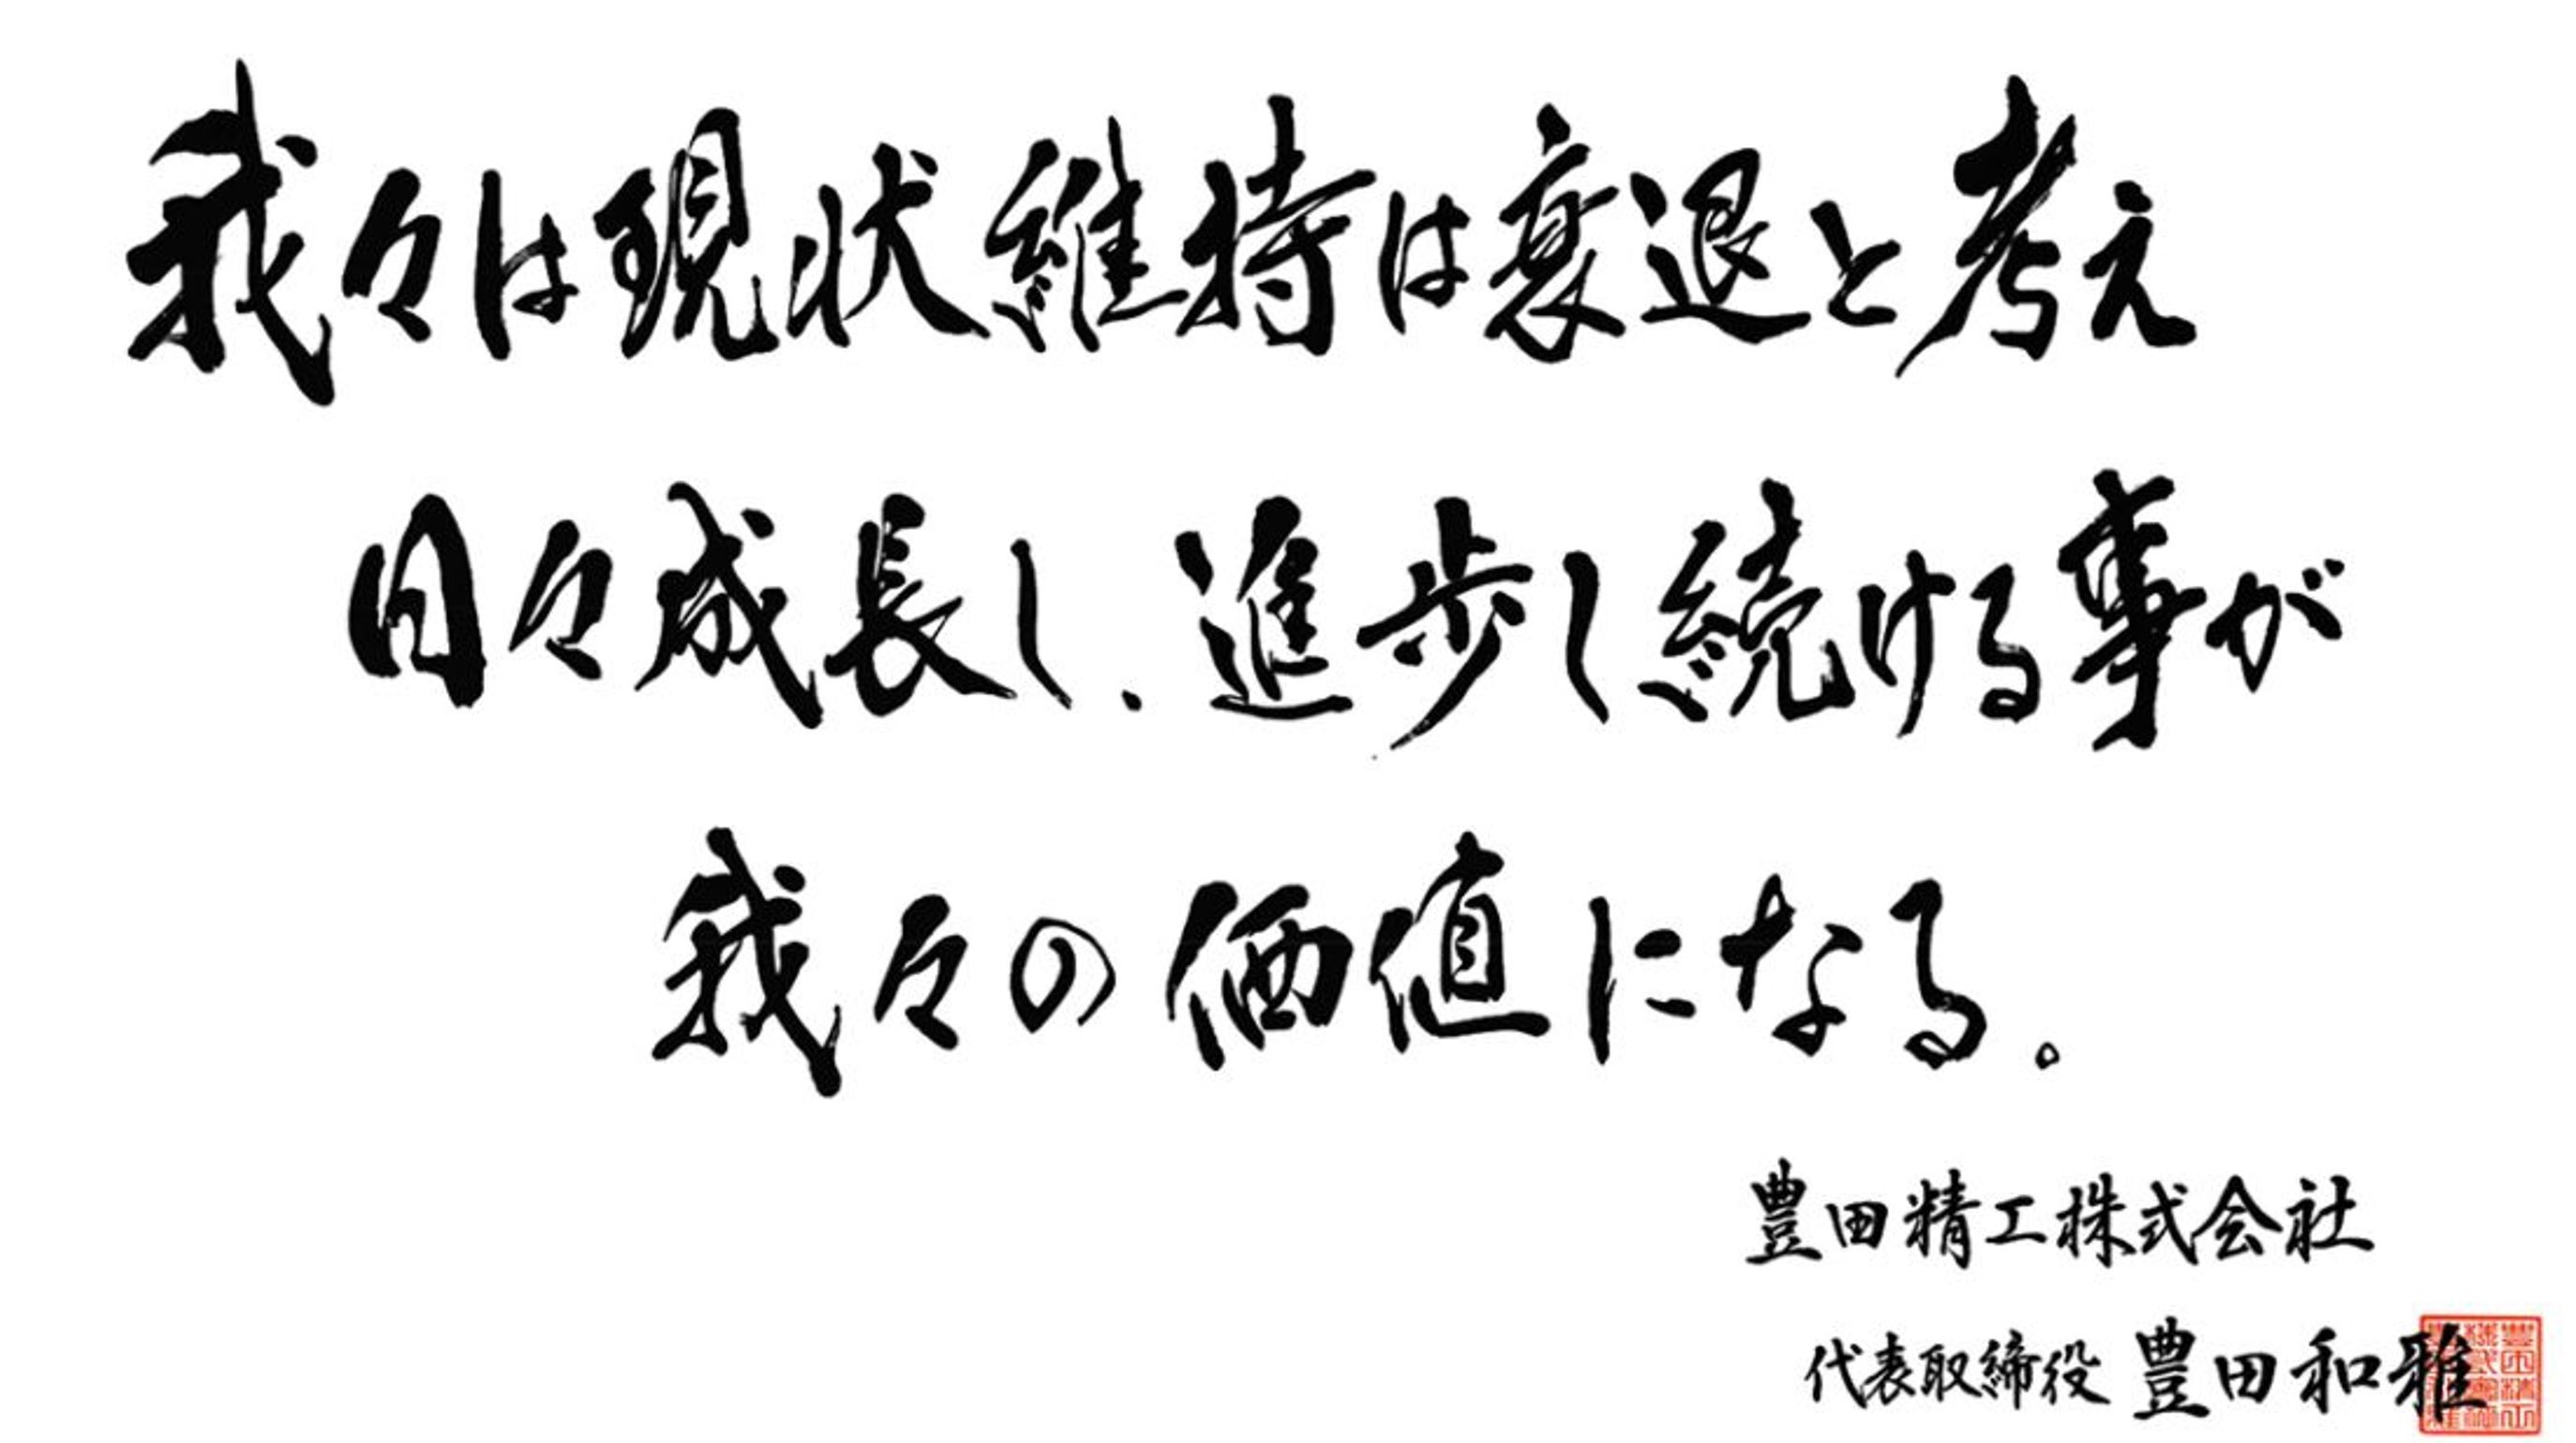 我々は現状維持は衰退と考え
日々成長し、進歩し続ける事が
我々の価値になる。
豊田精工株式会社
代表取締役 豊田和雅